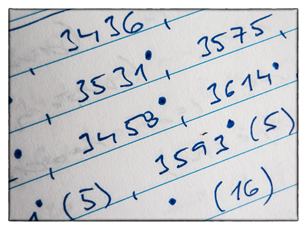 3436
3575
3531
3614
3458
3593 (5)
(5)
(16)